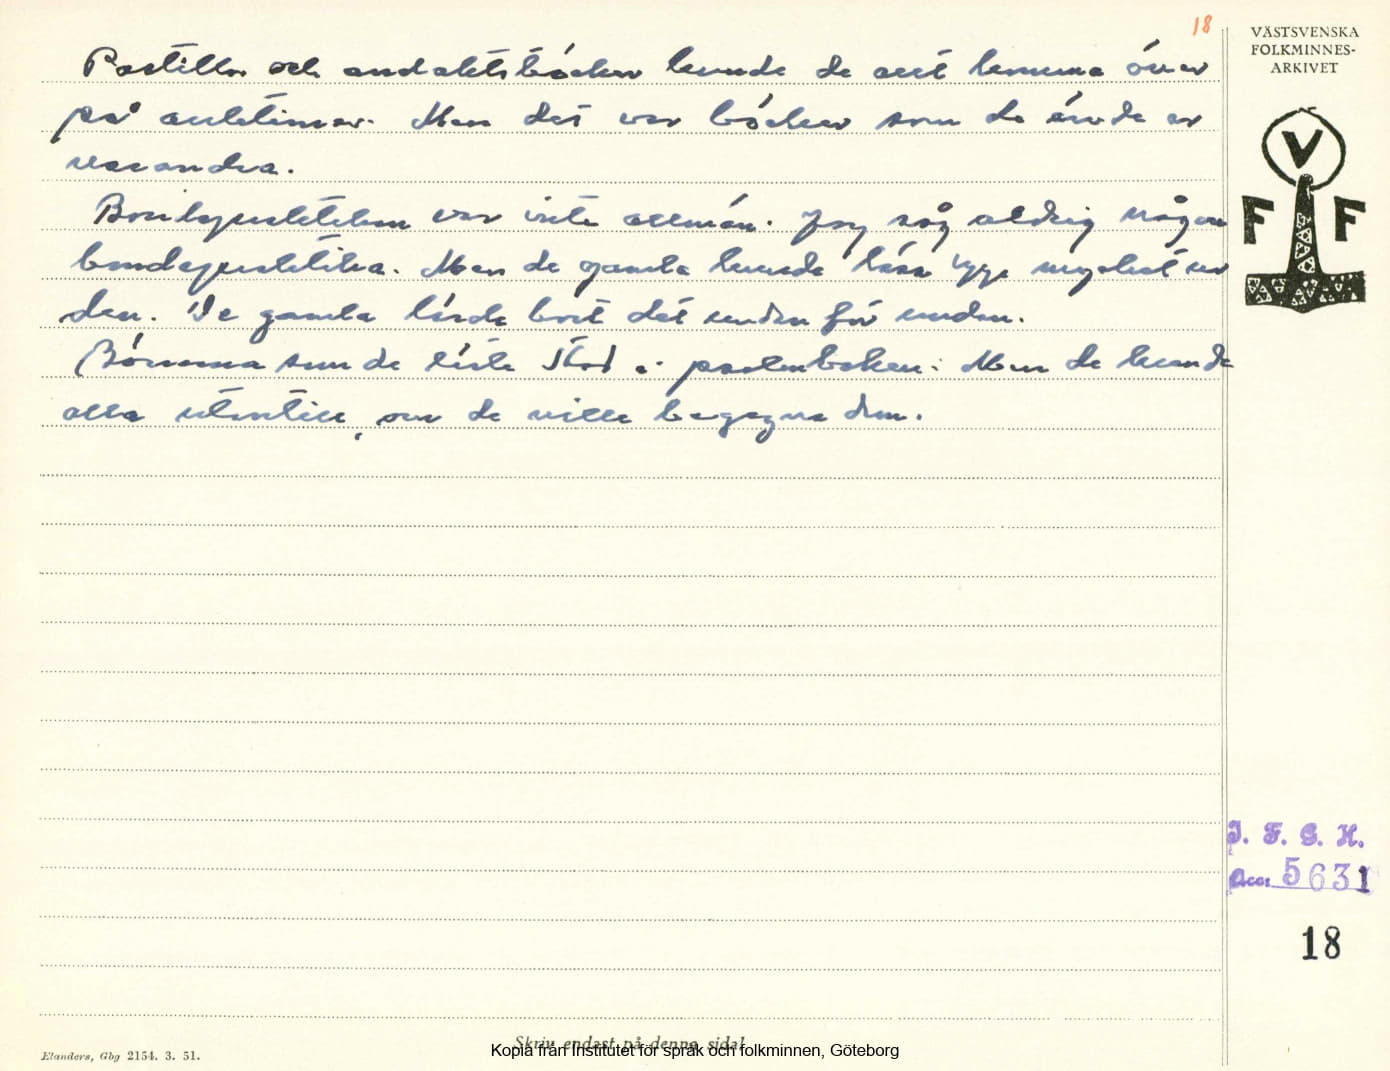 18
VÄSTSVENSKA
FOLKMINNES-
ARKIVET
V
F F
Postillor och andaktsböcker kunde de allt komma över
på auktioner. Men det var böcker som de ärvde av
varandra.
var inte allmän. Jag såg aldrig någon
Men de gamla kunde läsa mycket ur
den. De gamla lärde bort det undan för undan.
Bönerna som de läste stod i psalmboken. Men de kunde
alla utantill, om de ville begagna dem.
I. F. G. H.
Acc: 5631
18
Skriv endast på denna sida!
Kopia från Institutet för språk och folkminnen, Göteborg
Elanders, Gbg 2154. 3. 51.